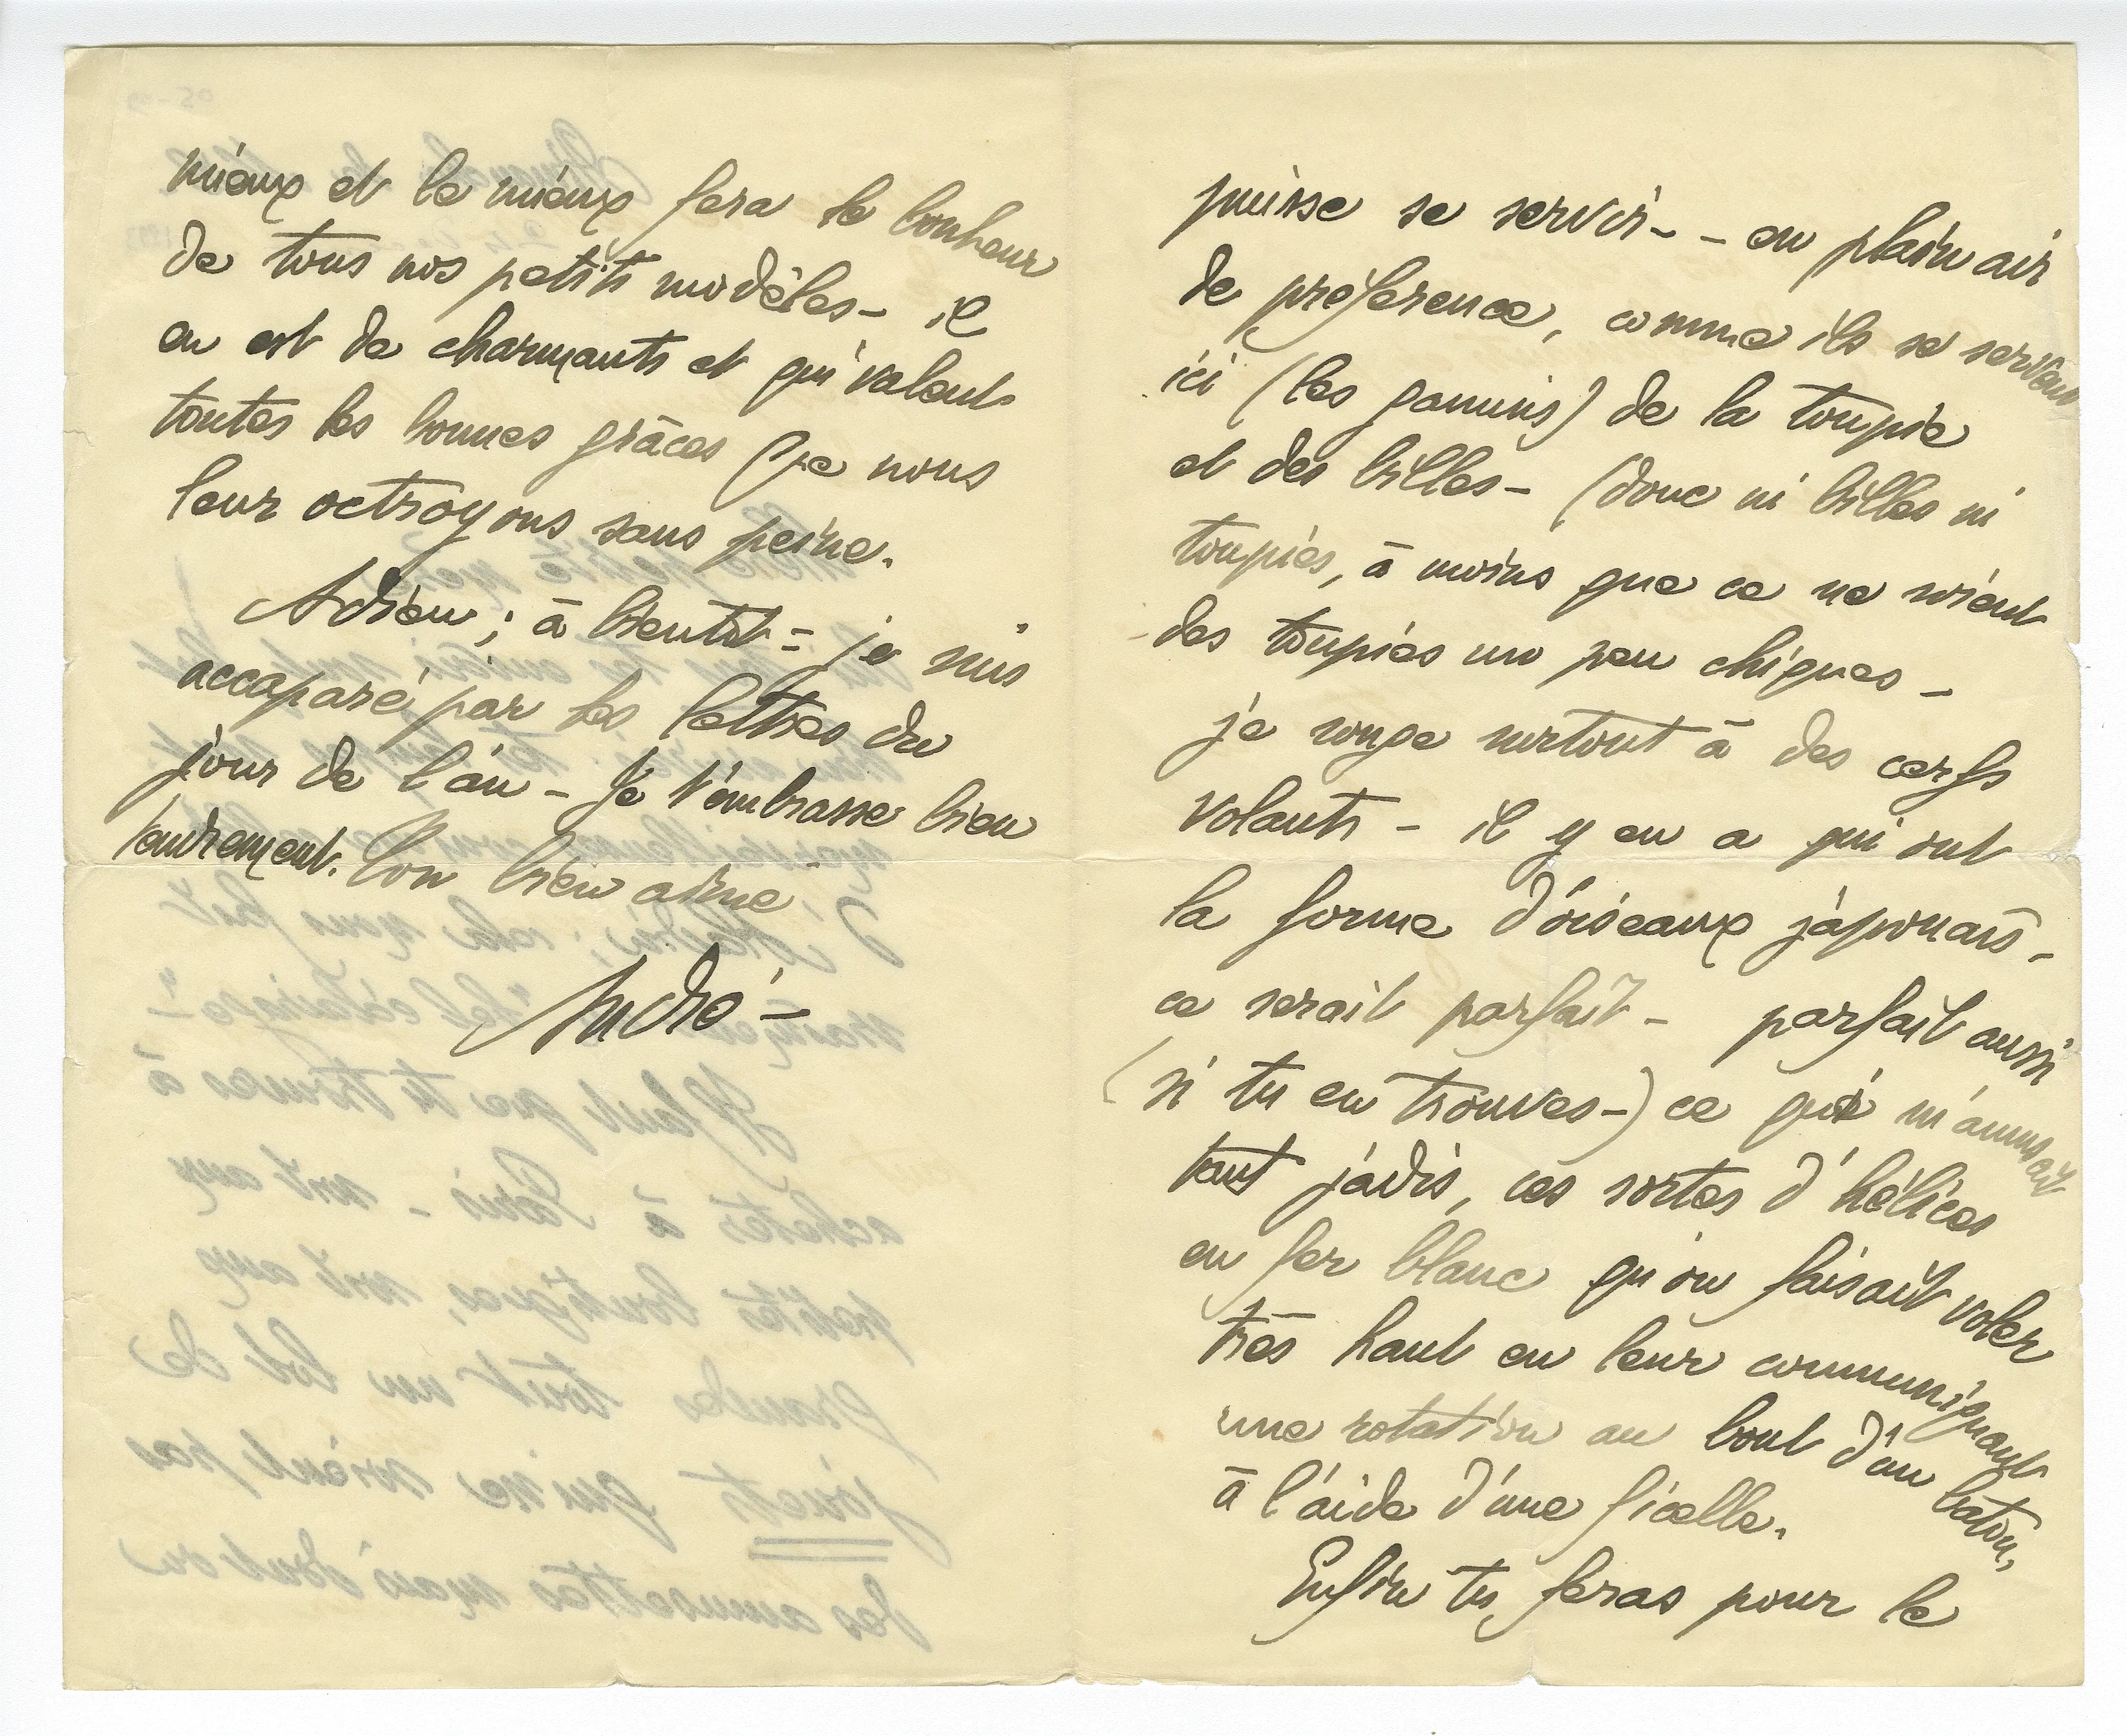 puisse se servir - - en plein air
de préférence, comme ils se servent
ici (les gamins) de la toupie
et des billes - (donc ni billes ni
toupies, à moins que ce ne soient
des toupies un peu chiques -
je songe surtout à des cerfs
volants - il y en a qui ont
la forme d'oiseaux japonais -
ce serait parfait - parfait aussi
(si tu en trouves -) ce qui m'amusait
tant jadis, ces sortes d'hélices
en fer blanc qu'on faisait voler
très haut en leur communiquant
une rotation au bout d'un bâton,
à l'aide d'une ficelle.
Enfin tu feras pour le
mieux et le mieux fera le bonheur
de tous nos petits modèles - il
en est de charmants et qui valent
toutes les bonnes grâces que nous
leur octroyons sans peine.
Adieu ; à bientôt = je suis
accaparé par les lettres du
jour de l'an - Je t'embrasse bien
tendrement. Ton bien aimé
André -